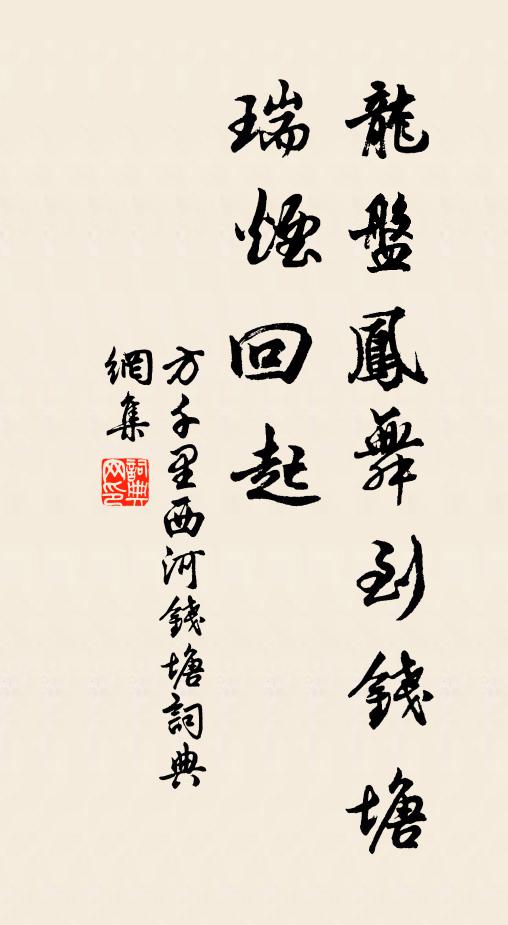 龍盤鳳舞到錢塘
瑞煙回起
方千里西河錢塘詞典
網集
詞典
网印